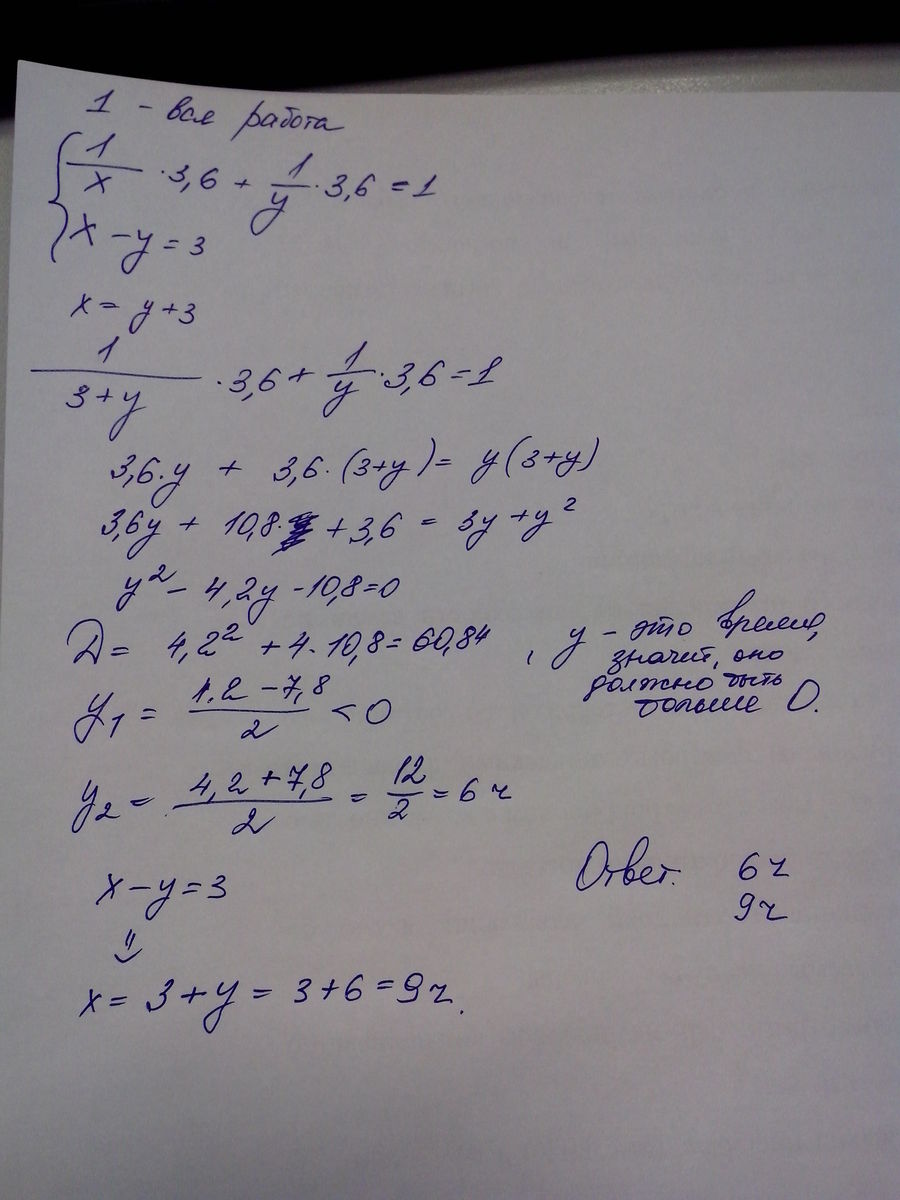 1 - вся работа
{ 1/x · 3,6 + 1/y · 3,6 = 1
x - y = 3
x = y + 3
1/(3+y) · 3,6 + 1/y · 3,6 = 1
3,6 · y + 3,6 · (3+y) = y(3+y)
3,6y + 10,8 · + 3,6 = 3y + y²
y² - 4,2y - 10,8 = 0
D = 4,2² + 4 · 10,8 = 60,84 , y - это время,
значит, оно
должно быть
больше 0.
y₁ = (4,2 - 7,8)/2 < 0
y₂ = (4,2 + 7,8)/2 = 12/2 = 6 ч
x - y = 3
⇓
x = 3 + y = 3 + 6 = 9 ч.
Ответ. 6 ч
9 ч